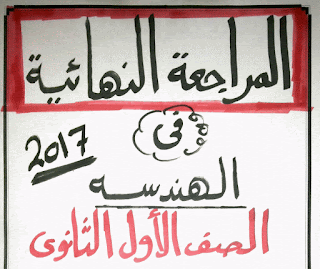 المراجعة النهائية
فى
2017
الهندسه
الصف الأول الثانوى